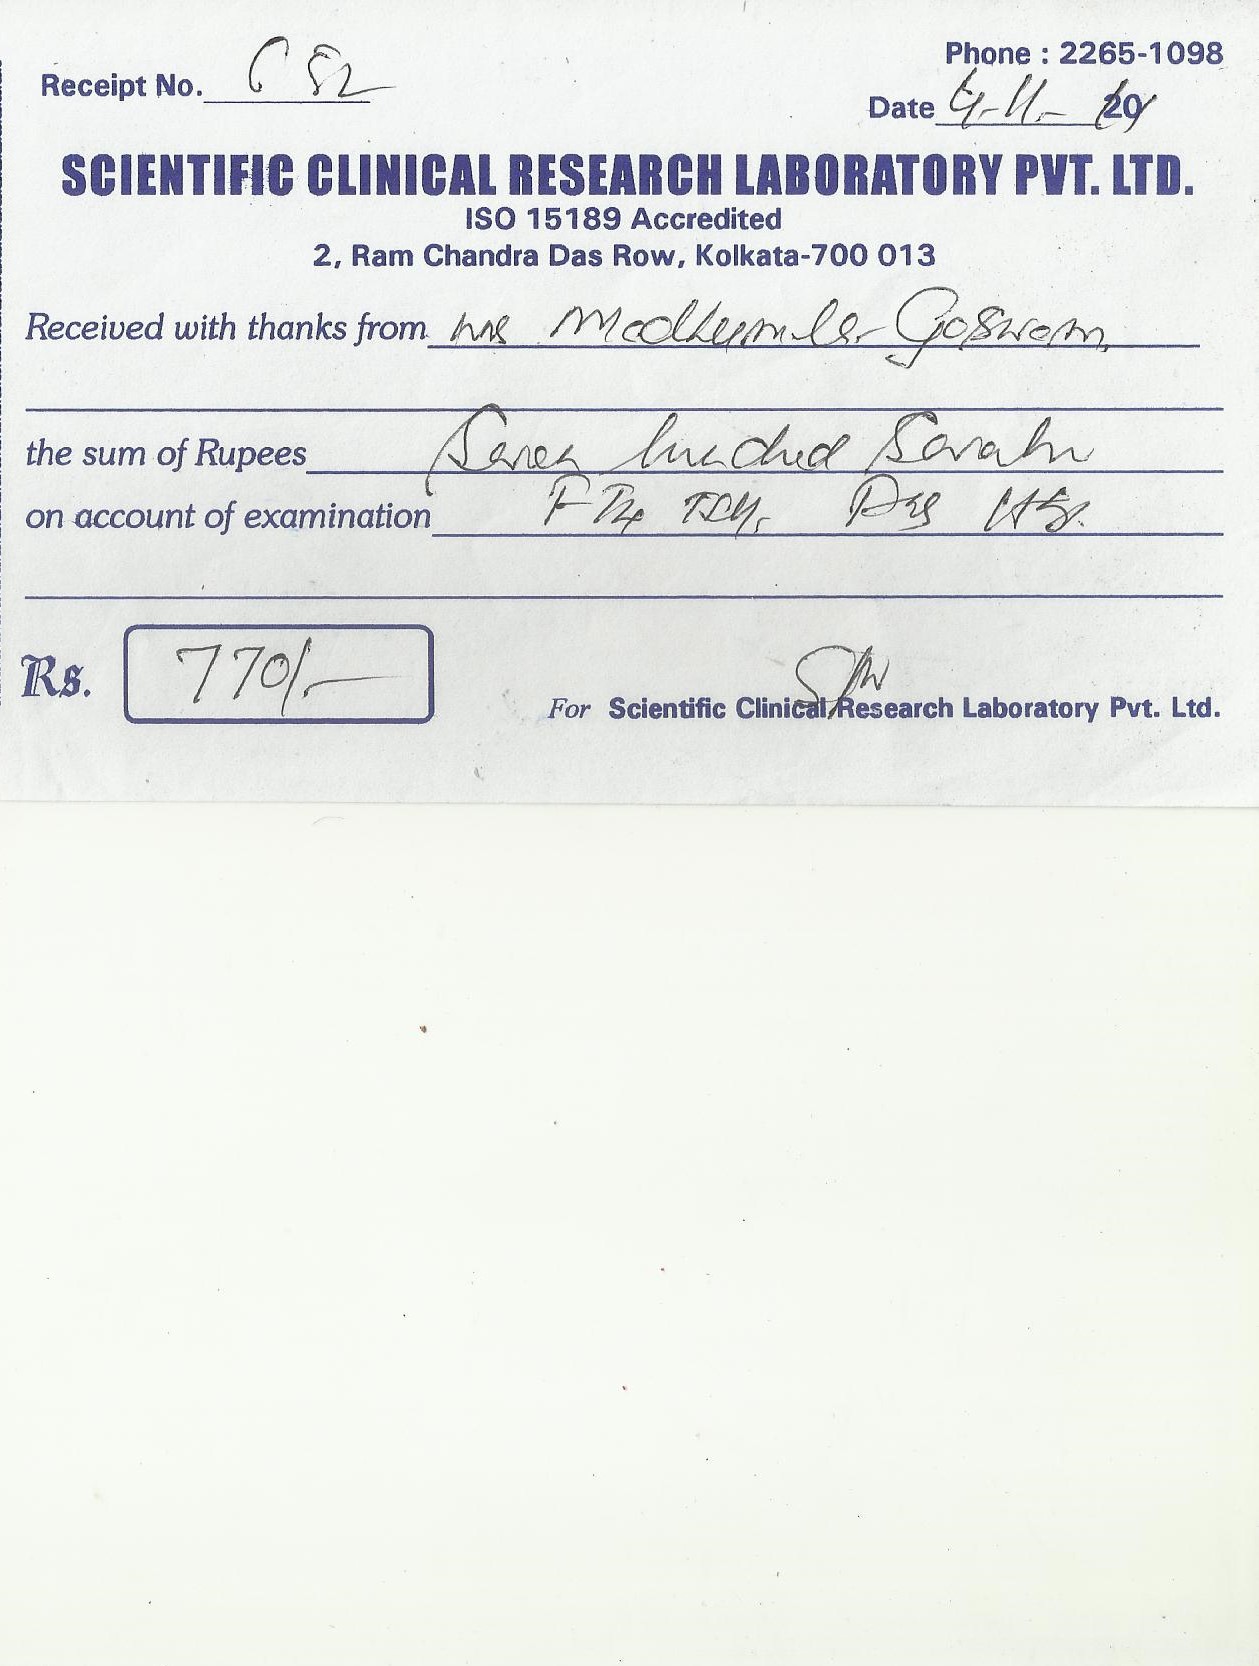 Phone : 2265-1098
Receipt No. 652
Date 4-11-
SCIENTIFIC CLINICAL RESEARCH LABORATORY PVT. LTD.
ISO 15189 Accredited
2, Ram Chandra Das Row, Kolkata-700 013
Received with thanks from Mrs Madhumita Goswami
the sum of Rupees Seven hundred
on account of examination FT4 TSH,
Rs. 770/-
For Scientific Clinical Research Laboratory Pvt. Ltd.